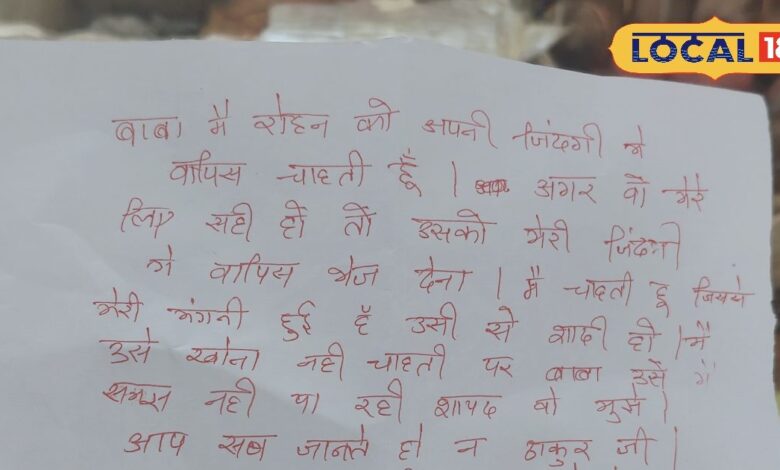 LOCAL 18
बाबा मै रोहन को अपनी जिंदगी मे
वापिस चाहती हूँ । अगर वो मेरे
लिए सही हो तो उसको मेरी जिंदगी
मे वापिस भेज देना । मै चाहती हू जिससे
मेरी मंगनी हुई है उसी से शादी हो । मै
उसे खोना नही चाहती पर बाबा उसे मै
समझ नही पा रही शायद वो मुझे ।
आप सब जानते हो न ठाकुर जी ।